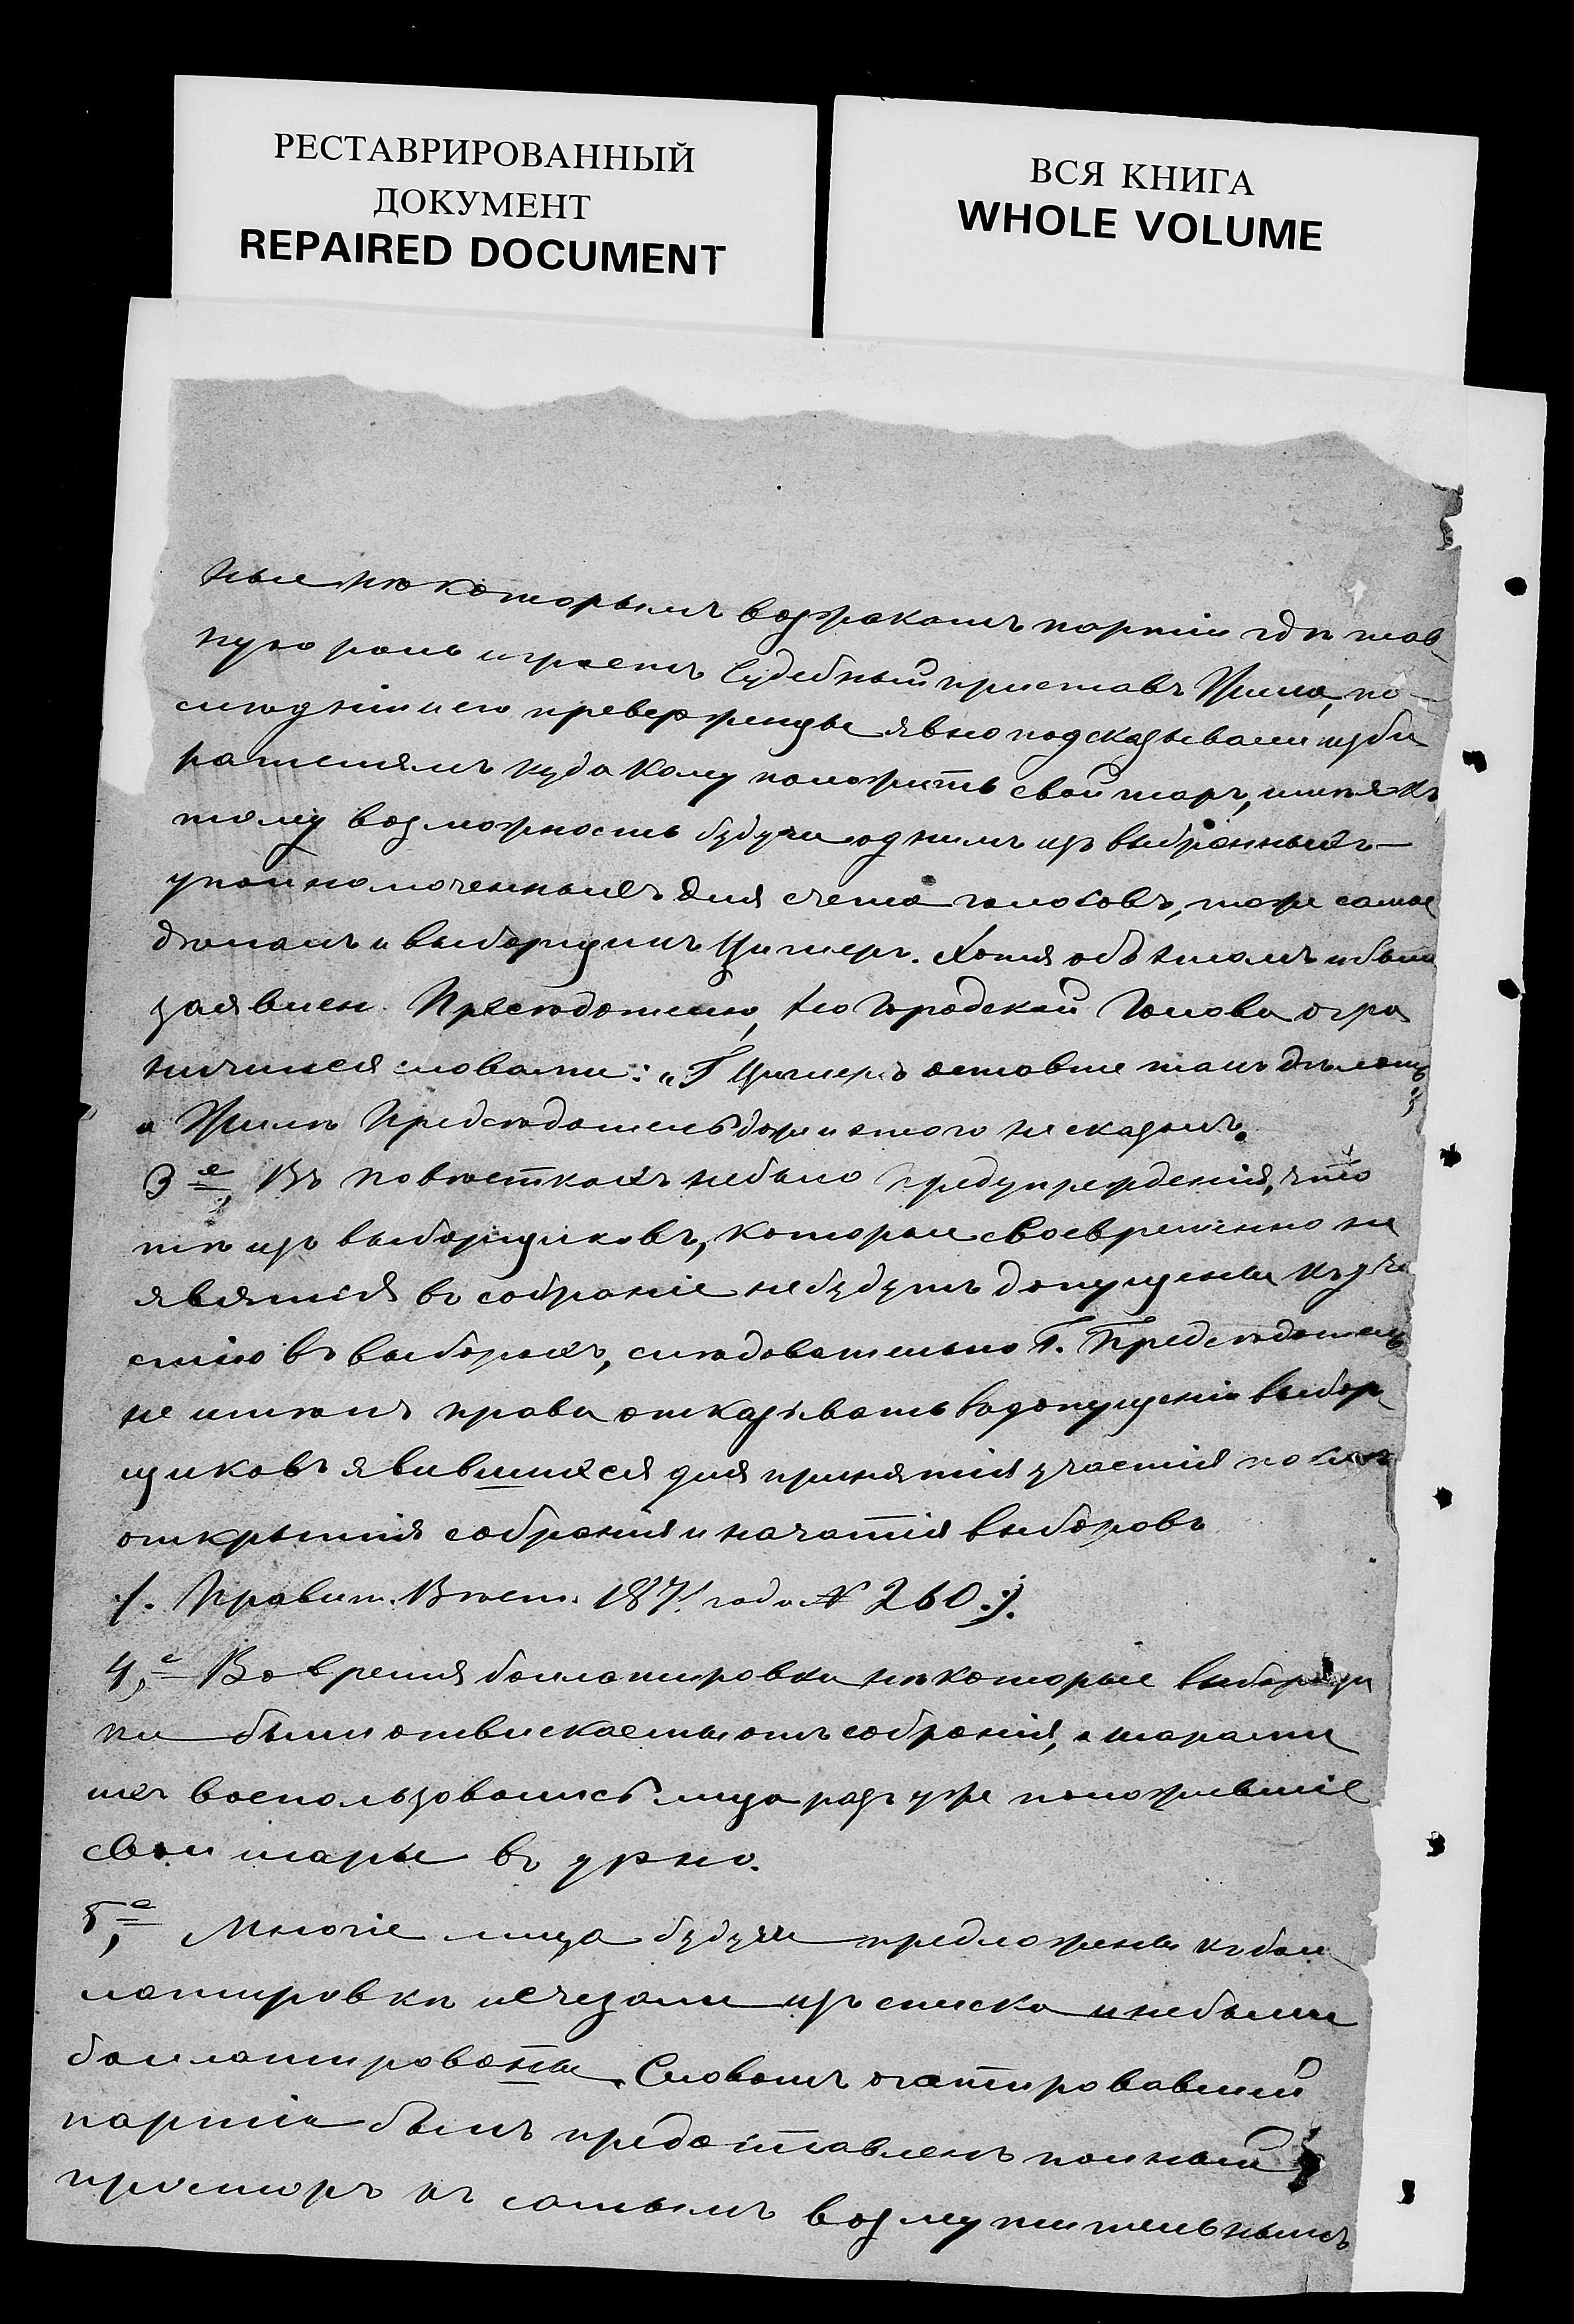 РЕСТАВРИРОВАННЫЙ
ДОКУМЕНТ
REPAIRED DOCUMENT
ВСЯ КНИГА
WHOLE VOLUME
некоторымъ вожакамъ партіи гдѣ глав
ную роль играетъ Судебный приставъ по-
слѣдній и его приверженцы явно подсказывали изби
рателямъ куда кому положить свой шаръ, имѣя къ
тому возможность будучи однимъ изъ выбранныхъ-
уполномоченныхъ для счета голосовъ, тоже самое
дѣлалъ и выборщикъ Цимеръ. Хотя объ этомъ и было
заявлен Предсѣдателю, но Городской Голова огра
ничился словами: „Г Цимеръ оставьте такъ дѣлать
а Предсѣдатель даже и этого не сказалъ.
3е, Въ повѣсткахъ небыло предупрежденія, что
тѣ изъ выборщиковъ, которые своевременно не
явятся въ собраніе небудутъ допущены къ уча
стію въ выборахъ, слѣдовательно Г. Предсѣдатель
не имѣлъ права отказывать въ допущеніи выбор
щиковъ явившихся для принятія участія послѣ
открытія собранія и начатія выборовъ
/. Правит. Вѣст. 1871 года № 260 ./.
4,е Во время баллатировки нѣкоторые выборщи
ки были отвлекаемы отъ собранія, а шарами
ихъ воспользовались лица разъ уже положившіе
свои шары въ урно.
5,е Многіе лица будучи предложены къ бал
латировки исчезали изъ списка и небыли
баллатированы. Словомъ агатировавшей
партіи былъ предоставленъ полный
просторъ къ самымъ возмутительнымъ